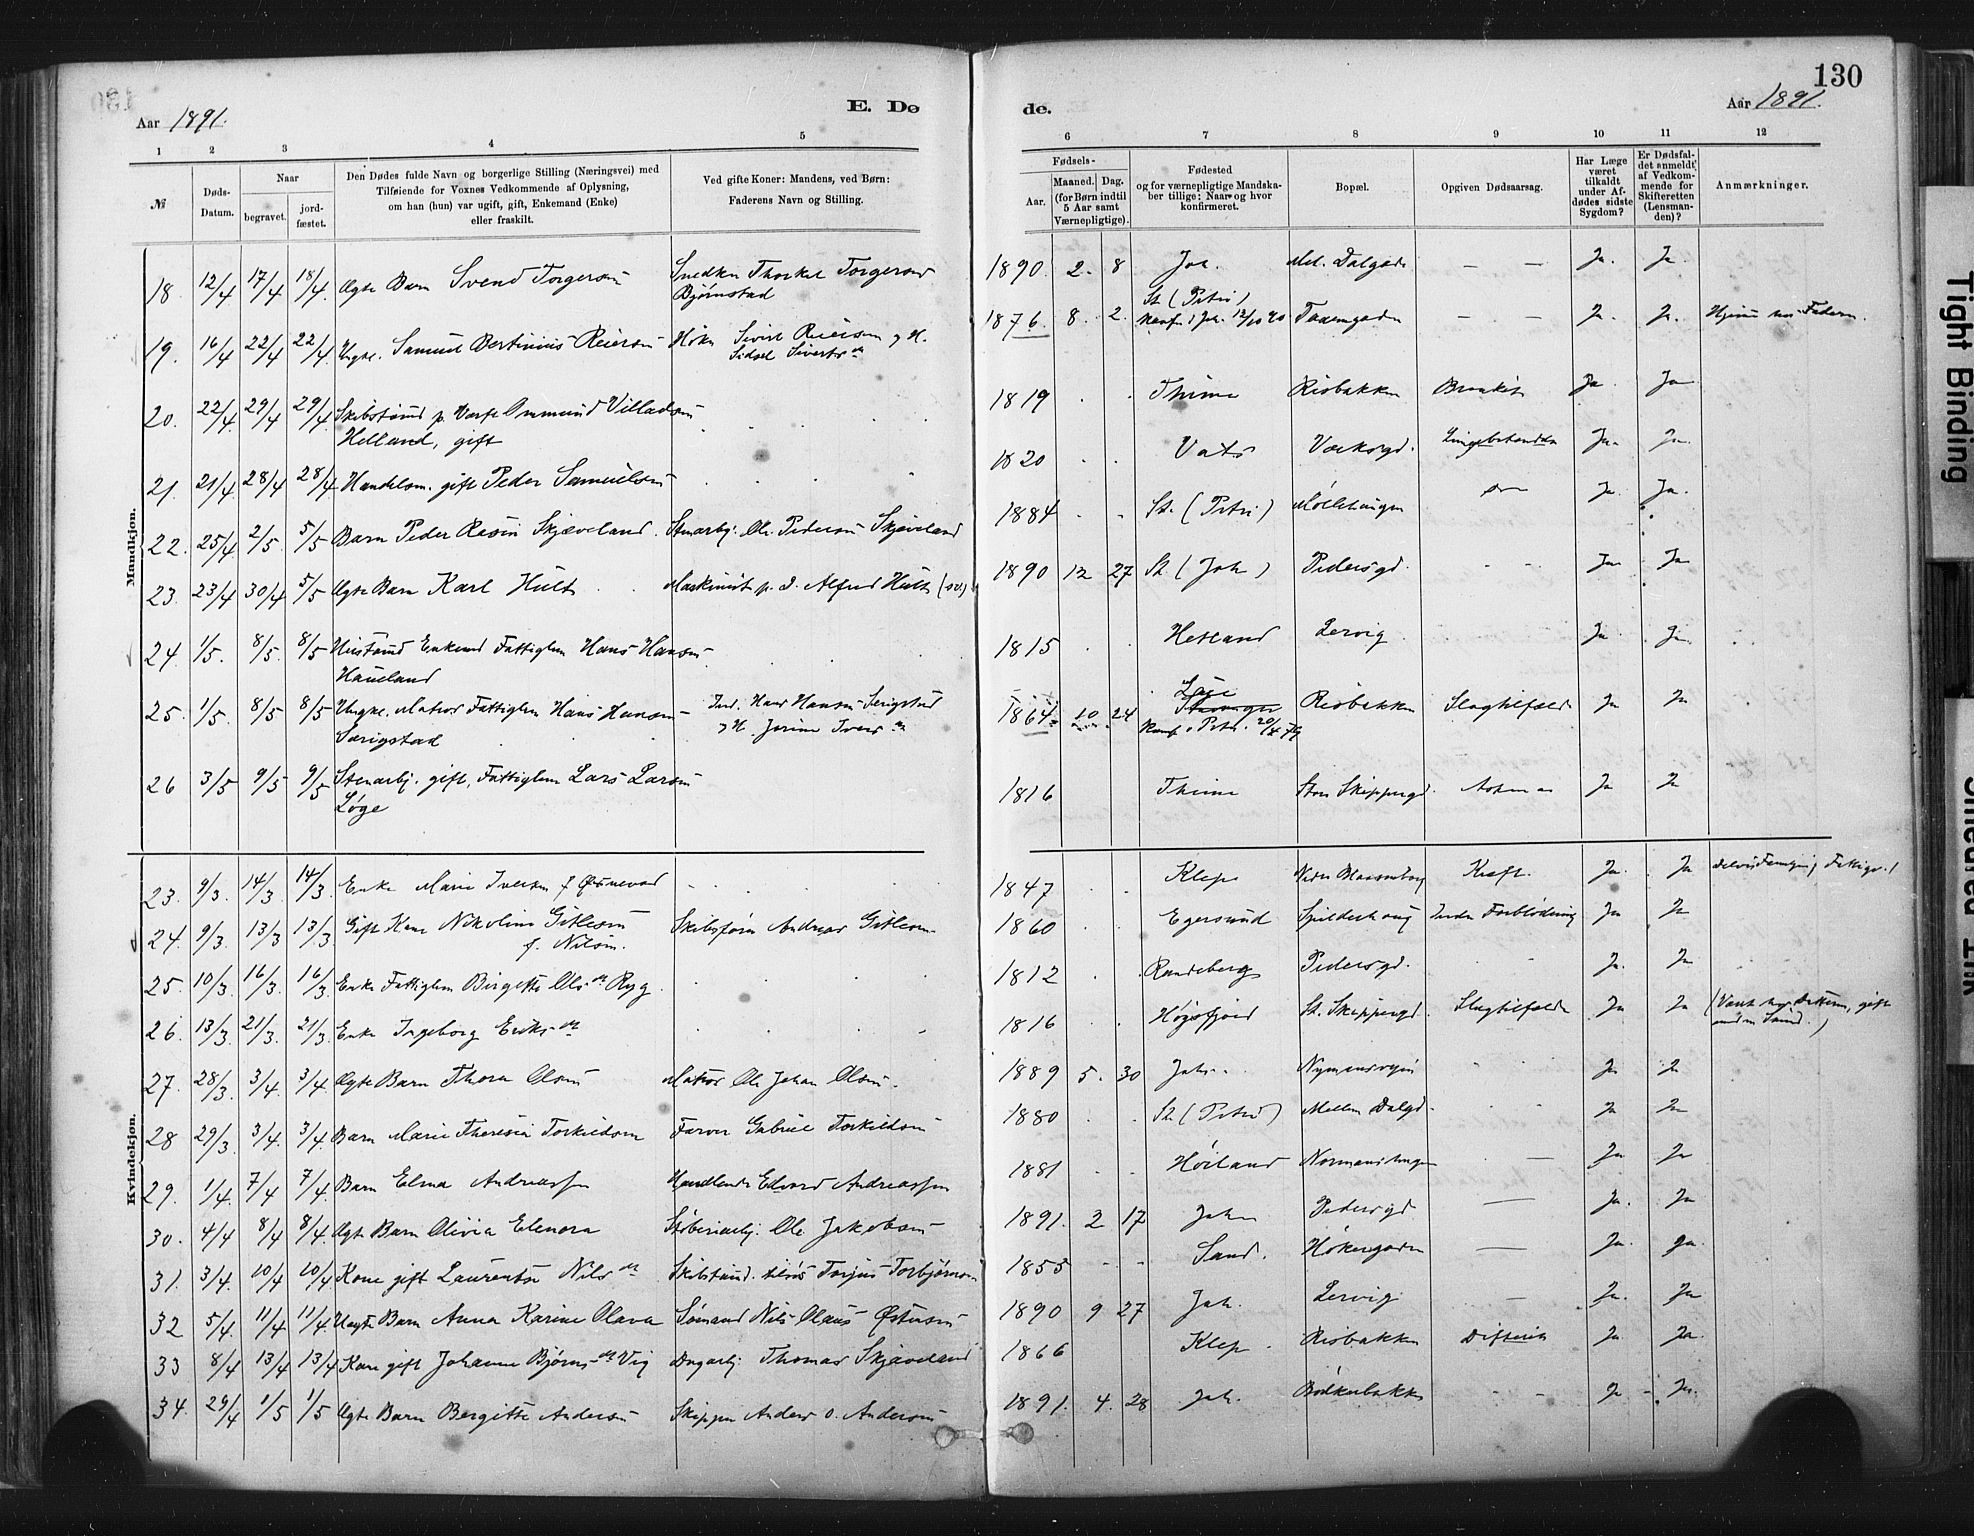 130
Aar 1891.
E. Dø
de.
Aar 1891.
1 2 3 4 5 6 7 8 9 10 11 12
№
Døds-
Datum.
Naar
begravet.
jord-
fæstet.
Den Dødes fulde Navn og borgerlige Stilling (Næringsvei) med
Tilføiende for Voxnes Vedkommende af Oplysning,
om han (hun) var ugift, gift, Enkemand (Enke)
eller fraskilt.
Ved gifte Koner: Mandens, ved Børn:
Faderens Navn og Stilling.
Fødsels-
Aar.
Maaned. Dag.
(for Børn indtil
5 Aar samt
Værnepligtige).
Fødested
og for værnepligtige Mandska-
ber tillige: Naar og hvor
konfirmeret.
Bopæl.
Opgiven Dødsaarsag.
Har Læge
været
tilkaldt
under Af-
dødes sidste
Sygdom?
Er Dødsfal-
det anmeldt
af Vedkom-
mende for
Skifteretten
(Lensman-
den)?
Anmærkninger.
Mandkjøn.
18. 12/4 17/4 18/4. Ægte Barn Svend Torgersen Snedker Thorkel Torgersen 1890. 2. 8 Joh. Mel. Dalgade — — Ja. Ja.
Bjørnstad
St. (Petri)
19. 16/4 22/4 22/4. Ungk. Samuel Bertinius Reiersen Høker Sivert Reiersen og H. 1876. 8. 2. Konf. i Joh. 12/10 90 — — Ja. Ja. Hjemme hos Faderen.
Sidsel Siverts dr
20. 22/4. 29/4 29/4. Skibstømd p. Værft Ommund Villadsen 1819 Thime Risbakken Bronkit Ja. Ja
Helland, gift
21. 21/4 28/4 28/4 Handelsm. gift Peder Samuelsen 1820 Vats Værksgd. Lungebetændelse Ja. Ja.
22. 25/4 2/5. 5/5 Barn Peder Resin Skjæveland. Stenarbj. Ole Pedersen Skjæveland 1884 St. (Petri) Møllehaugen Ja. Ja.
23. 23/4 30/4 5/5 Ægte Barn Karl Hult Maskinist p. D. Alfred Hult 1890 12 27 St. (Joh) Pedersgd. - - Ja Ja
24. 1/5. 8/5. 8/5 Enkemd Fattiglem Hans Hansen 1815 Hetland Lervig Ja. Ja.
Haueland
25. 1/5. 8/5 8/5 Ungk. Matros Fattiglem Hans Hansen Ind. Hans Hansen Serigstad 1864 10 24 Risbakken Slagtilfælde Ja Ja
Særigstad og H. Jorine Ivers dr Konf. i Petri.
26 3/5 9/5 9/5 Stenarbj. gift, Fattiglem Lars Larsen 1816 Thime Store Skippergd. Ja Ja
Løge
Kvindekjøn.
23. 9/3. 14/3 14/3 Enke Marie Iversen f. 1847 Klep Nedre Kræft. Ja. Ja
24. 9/3. 13/3 13/3 Gift Kone Nikoline Gitlesen Skibsfører Andreas Gitlesen 1860 Egersund Spilderhaug Indre Forblødning Ja Ja
f. Nilsen.
25. 10/3. 16/3. 16/3. Enke Fattiglem Birgitte Ols dr Ryg 1812 Randeberg Pedersgd. Ja. Ja
26. 13/3. 21/3. 21/3. Enke Ingeborg Eriks dr 1816 Høgsfjord St. Skippergd. Slagtilfælde Ja Ja
27. 28/3. 3/4. 3/4. Ægte Barn Thora Olsen Matros Ole Johan Olsen. 1889 5. 30 Joh. Ja Ja
28 29/3 3/4. 3/4. Barn Marie Theresia Torkildsen Farver Gabriel Torkildsen 1880 St. (Petri) Mellem Dalgd. Ja Ja
29. 1/4. 7/4 7/4. Barn Elma Andreassen Handlende Edvard Andreassen 1881 Høiland Ja Ja
30. 4/4 8/4 8/4. Ægte Barn Olivia Elenora Støberiarbj. Ole Jakobsen 1891. 2 17 Joh. Pedersgd — Ja. Ja
31. 3/4. 10/4 10/4. Kone gift Laurentse Nils dr Torjus Torbjørnsen 1855 Sand. Høkergaden — Ja. Ja.
32 5/4. 11/4 11/4. Uægte Barn Anna Karine Olava Sømand Nils Olaus Østensen 1890 9 27 Joh. Lervig — Ja. Ja
33 8/4 13/4 13/4 Kone gift Johanne Bjørns dr Vig Dagarbj. Thomas Skjæveland 1866 Klep. Risbakken Difterit Ja Ja.
34. 29/4 1/5 1/5 Ægte Barn Bergitte Andersen Skipper Anders O. Andersen 1891. 4. 28 Joh. Bødkerbakken - - Ja Ja.
Tight Binding
Smeared Ink